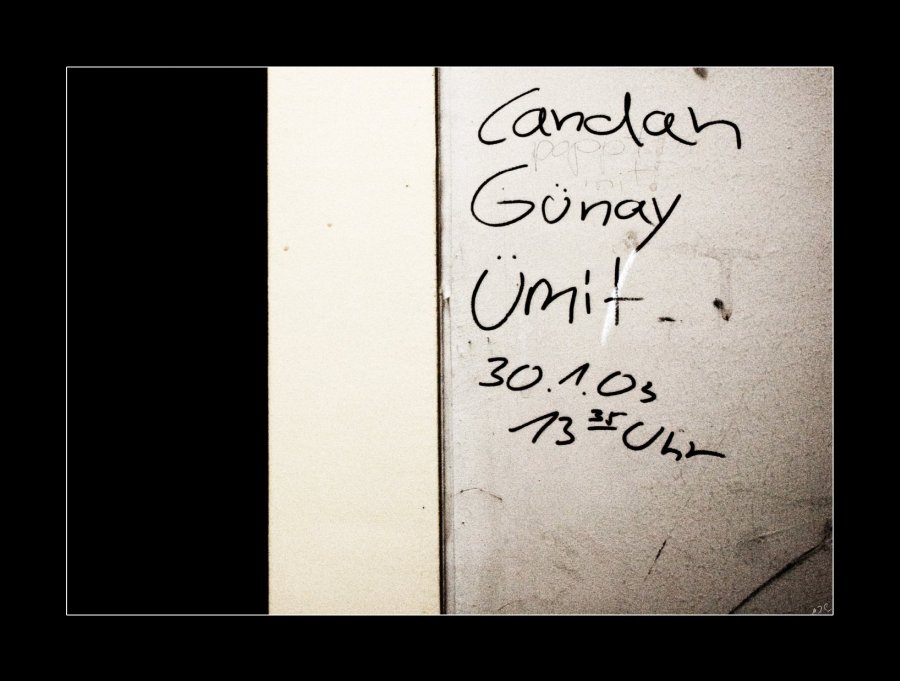 Candan
Günay
Ümit
30.1.03
13 35 Uhr